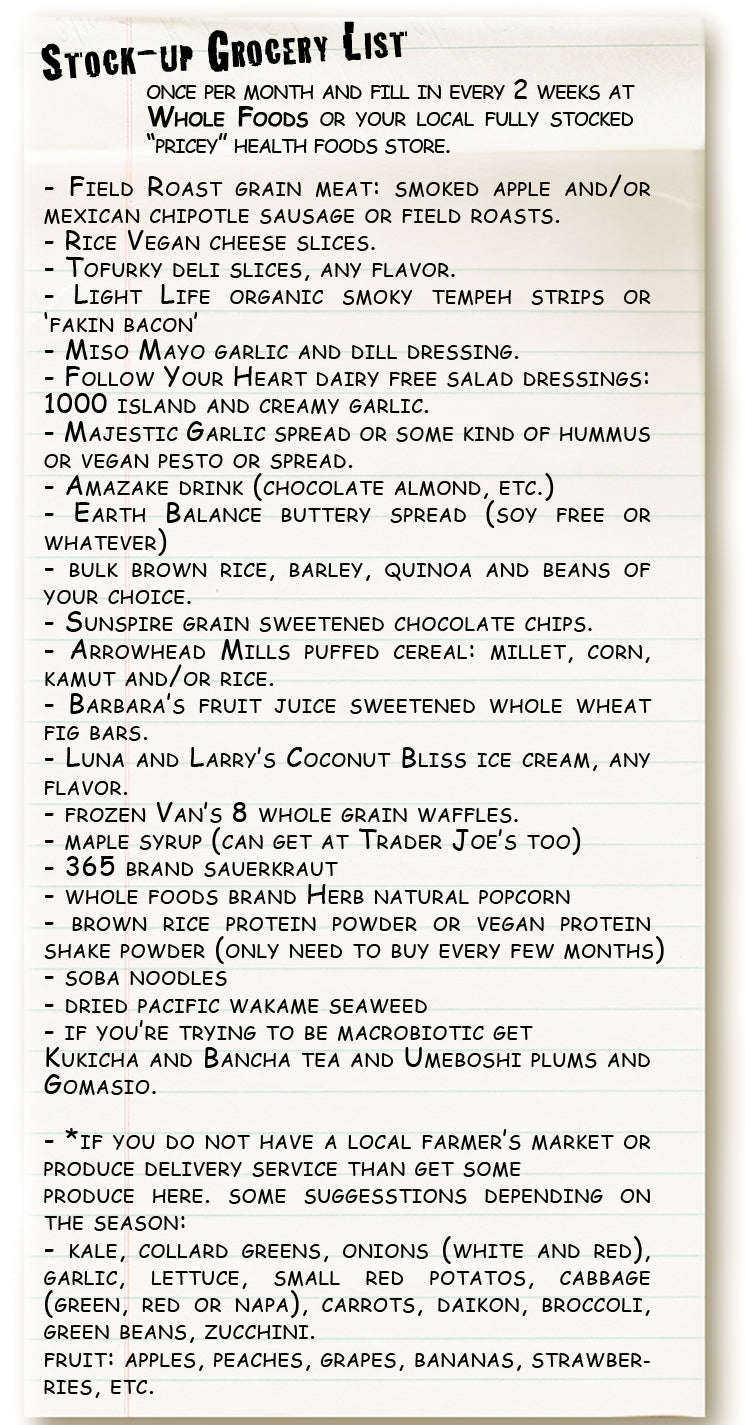 Stock-up Grocery List
once per month and fill in every 2 weeks at
Whole Foods or your local fully stocked
"pricey" health foods store.
- Field Roast grain meat: smoked apple and/or
mexican chipotle sausage or field roasts.
- Rice Vegan cheese slices.
- Tofurky deli slices, any flavor.
- Light Life organic smoky tempeh strips or
'fakin bacon'
- Miso Mayo garlic and dill dressing.
- Follow Your Heart dairy free salad dressings:
1000 island and creamy garlic.
- Majestic Garlic spread or some kind of hummus
or vegan pesto or spread.
- Amazake drink (chocolate almond, etc.)
- Earth Balance buttery spread (soy free or
whatever)
- bulk brown rice, barley, quinoa and beans of
your choice.
- Sunspire grain sweetened chocolate chips.
- Arrowhead Mills puffed cereal: millet, corn,
kamut and/or rice.
- Barbara's fruit juice sweetened whole wheat
fig bars.
- Luna and Larry's Coconut Bliss ice cream, any
flavor.
- frozen Van's 8 whole grain waffles.
- maple syrup (can get at Trader Joe's too)
- 365 brand sauerkraut
- whole foods brand Herb natural popcorn
- brown rice protein powder or vegan protein
shake powder (only need to buy every few months)
- soba noodles
- dried pacific wakame seaweed
- if you're trying to be macrobiotic get
Kukicha and Bancha tea and Umeboshi plums and
Gomasio.
- *if you do not have a local farmer's market or
produce delivery service than get some
produce here. some suggesstions depending on
the season:
- kale, collard greens, onions (white and red),
garlic, lettuce, small red potatos, cabbage
(green, red or napa), carrots, daikon, broccoli,
green beans, zucchini.
fruit: apples, peaches, grapes, bananas, strawber-
ries, etc.